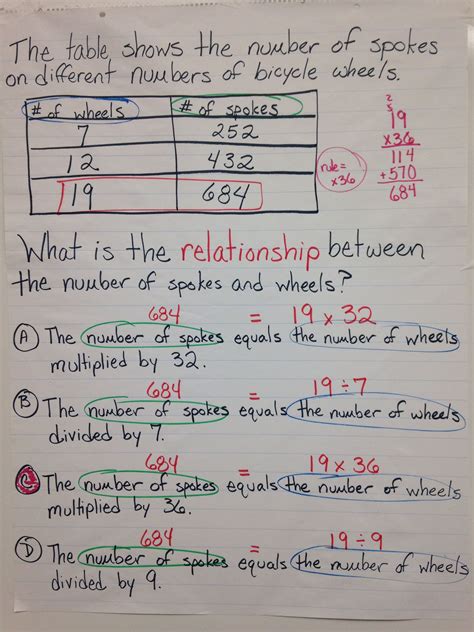 The table shows the number of spokes
on different numbers of bicycle wheels.
# of wheels # of spokes
7 252
12 432
19 684
rule =
x36
2
5
19
x36
114
+570
684
What is the relationship between
the number of spokes and wheels?
684 = 19 x 32
A The number of spokes equals the number of wheels
multiplied by 32.
684 = 19 ÷ 7
B The number of spokes equals the number of wheels
divided by 7.
684 = 19 x 36
C The number of spokes equals the number of wheels
multiplied by 36.
684 = 19 ÷ 9
D The number of spokes equals the number of wheels
divided by 9.